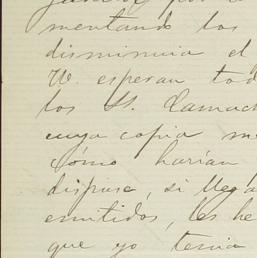 mentando los
disminuia el
W. esperan tod
los SS. Camach
cuya copia me
Cómo harían
dispuse, si llegá
emitidos, les he
que yo tenia